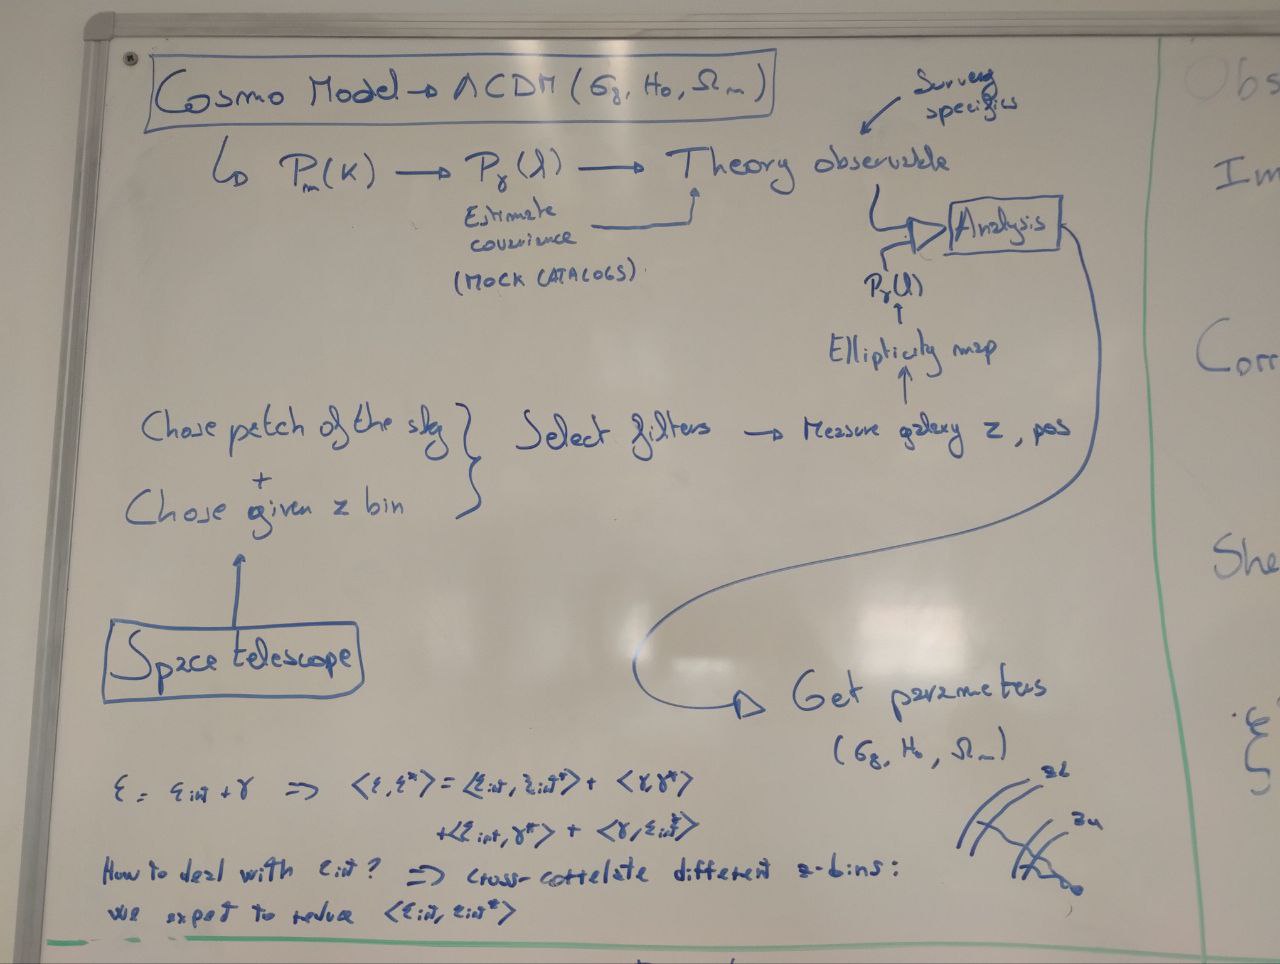 Cosmo Model → ΛCDM (σ8, H0, Ωm)
Survey
specifics
↳ Pm(K) → Pγ(l) → Theory observable
Estimate
covariance
(MOCK CATALOGS)
Analysis
Pγ(l)
Ellipticity map
Chose patch of the sky
+
Chose given z bin
Select filters → Measure galaxy z, pos
Space telescope
Get parameters
(σ8, H0, Ωm)
ε = εint + γ ⇒ <ε,ε*> = <εint, εint*> + <γ,γ*>
+<εint, γ*> + <γ, εint*>
How to deal with εint? ⇒ cross-correlate different z-bins:
we expet to reduce <εint, εint*>
Obs
Im
Corr
She